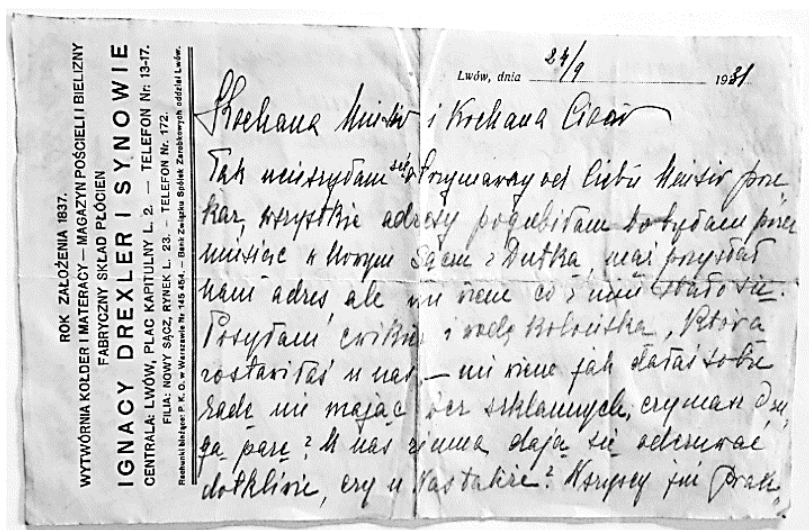 ROK ZAŁOŻENIA 1837.
WYTWÓRNIA KOŁDER I MATERACY — MAGAZYN POŚCIELI I BIELIZNY
FABRYCZNY SKŁAD PŁÓCIEN
IGNACY DREXLER I SYNOWIE
CENTRALA: LWÓW, PLAC KAPITULNY L. 2. — TELEFON Nr. 13-17.
FILIA: NOWY SĄCZ, RYNEK L. 23. - TELEFON Nr. 172.
Rachunki bieżące: P. K. O. w Warszawie Nr. 145 454. — Bank Związku Spółek Zarobkowych oddział Lwów.
Lwów, dnia 24/9 1931
Kochana i Kochana
Tak ucieszyłam się otrzymawszy od Ciebie prze-
kaz, wszystkie adresy pogubiłam bo byłam przez
miesiąc w Nowym Sączu z Dutką, miał przysłać
nam adres ale nie wiem co z nim stało się.
Posyłam ćwikier i wodę kolońską, która
zostawiłaś u nas — nie wiem jak dałaś sobie
radę nie mając ócz szklannych, czy masz dru-
gą parę? U nas zimna dają się odczuwać
dotkliwie, czy u Was także? Wszyscy już